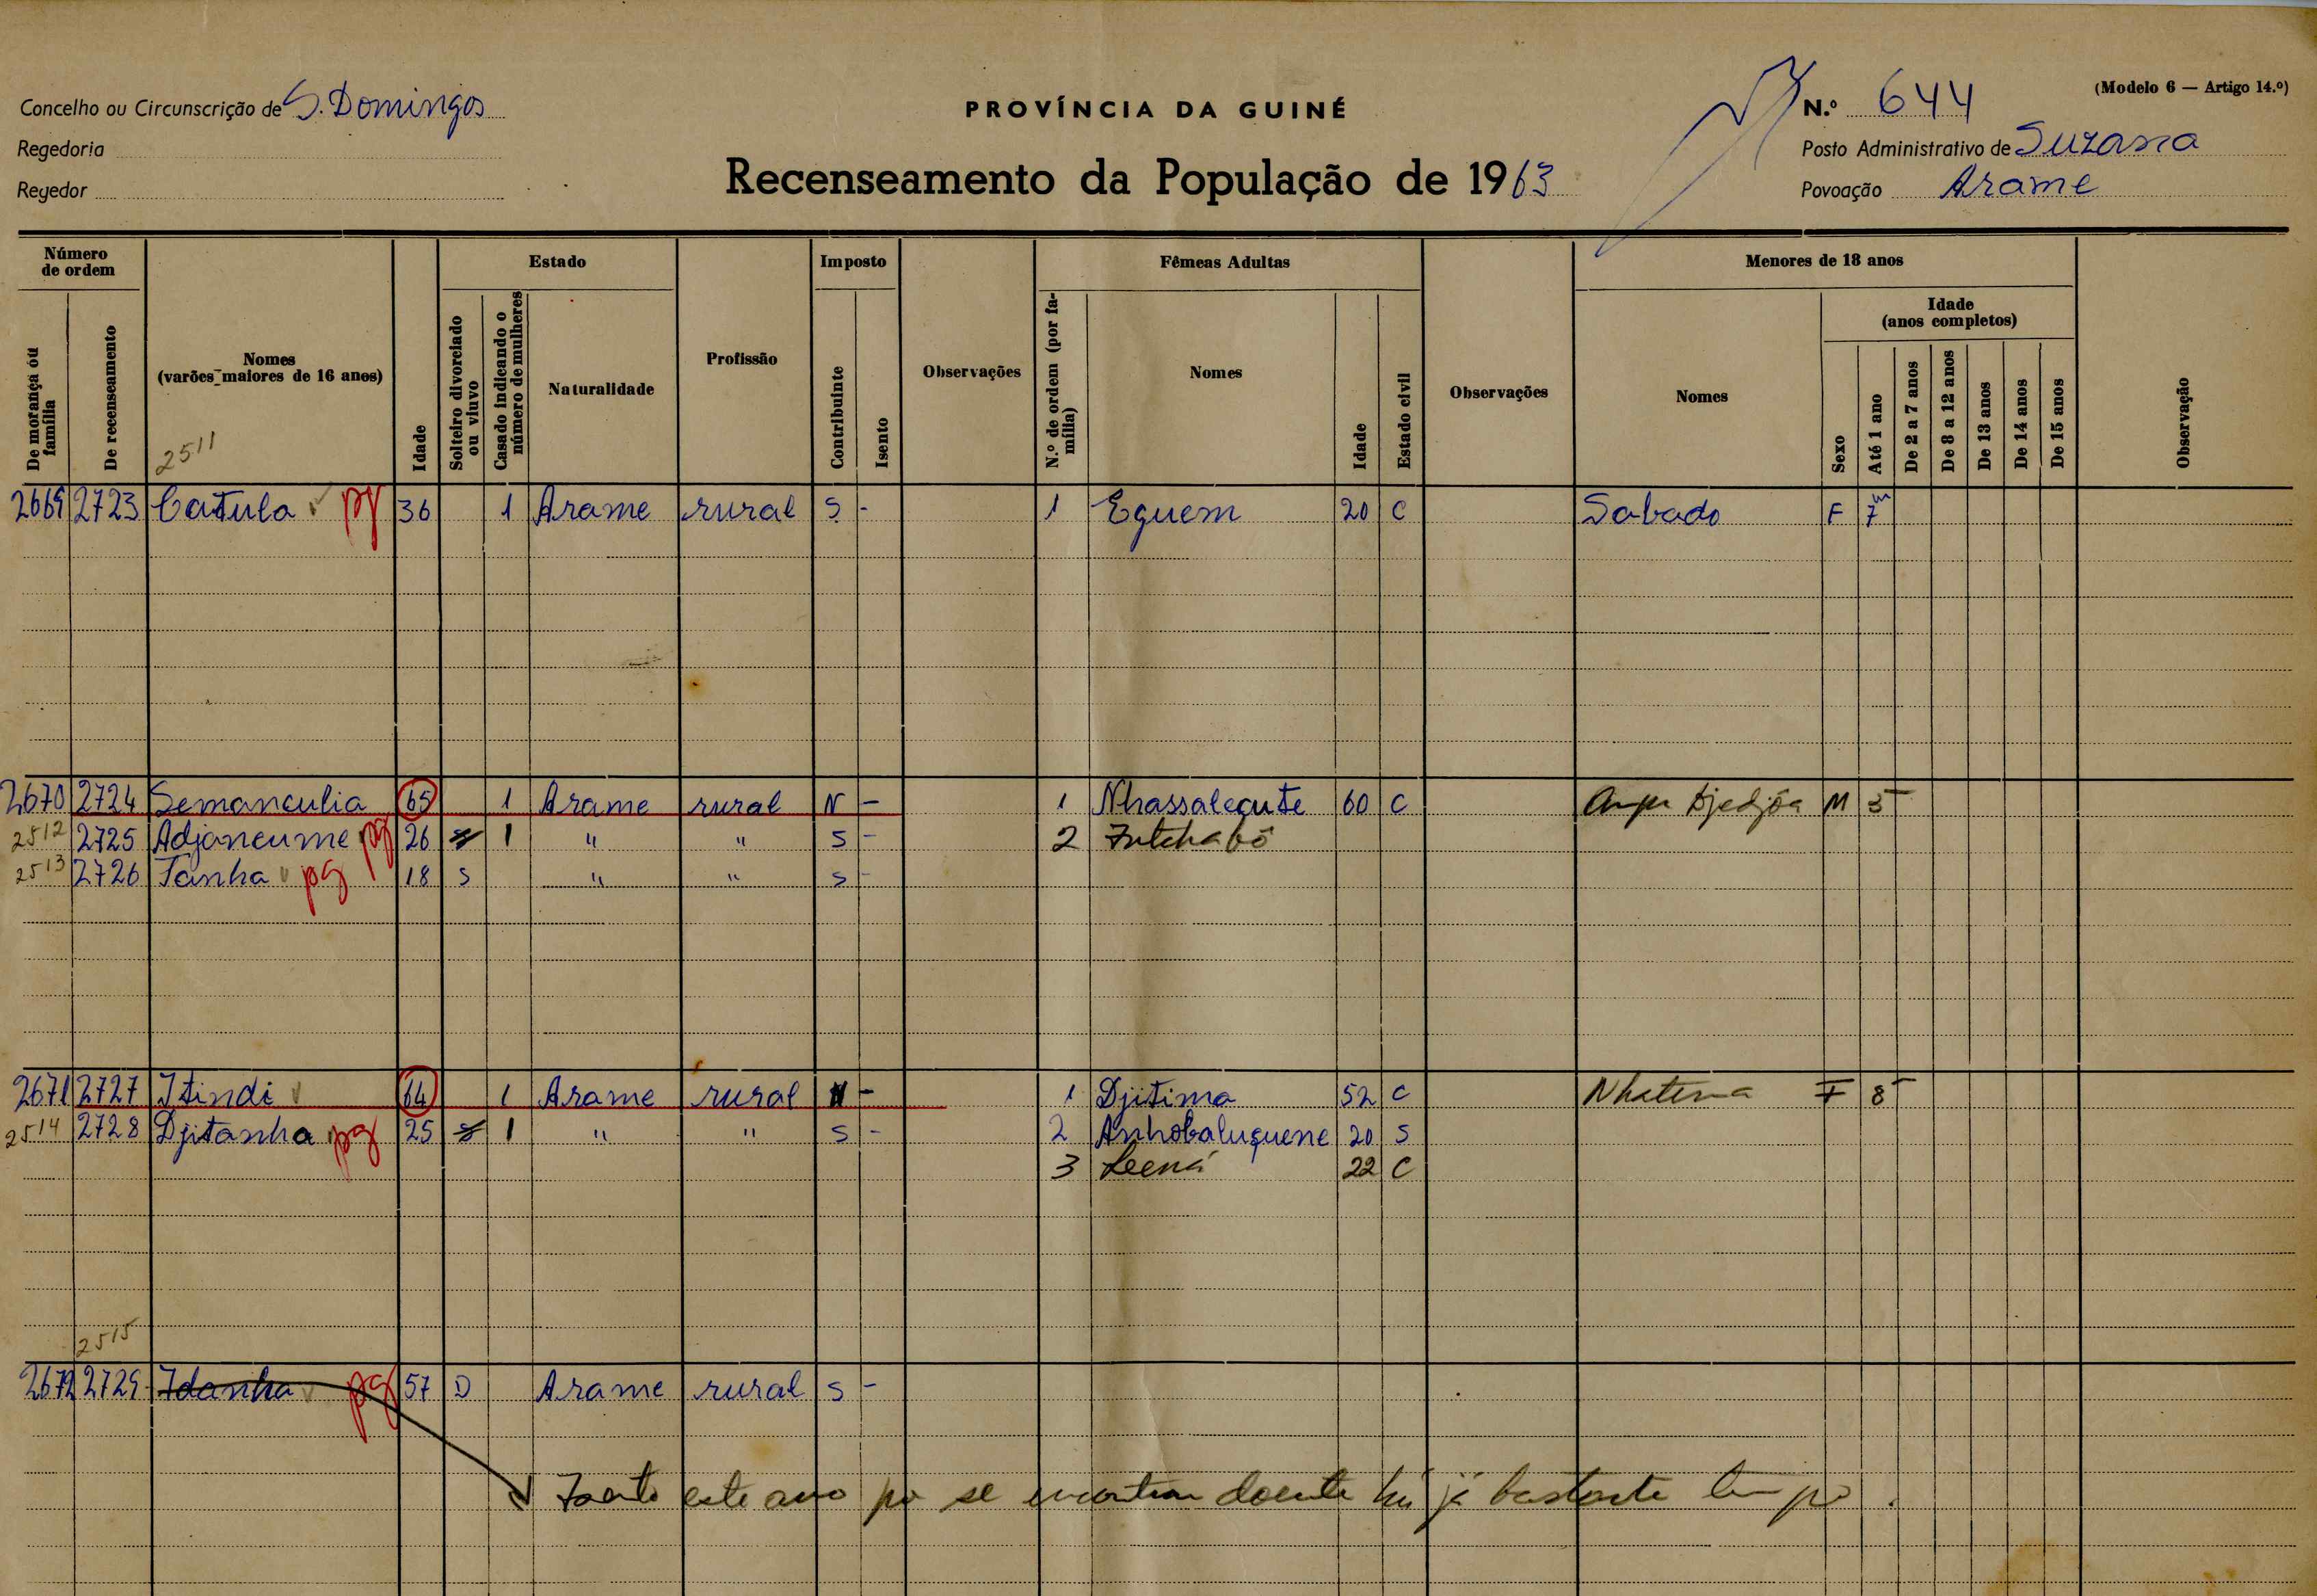 (Modelo 6 — Artigo 14.º)
Concelho ou Circunscrição de S. Domingos
PROVÍNCIA DA GUINÉ
N.º 644
Regedoria
Posto Administrativo de Suzana
Regedor
Recenseamento da População de 1963
Povoação Arame
Número de ordem
Estado
Imposto
Fêmeas Adultas
Menores de 18 anos
De morança ou família
De recenseamento
Nomes (varões maiores de 16 anos)
2511
Idade
Solteiro divorciado ou viuvo
Casado indicando o número de mulheres
Naturalidade
Profissão
Contribuinte
Isento
Observações
N.º de ordem (por família)
Nomes
Idade
Estado civil
Observações
Nomes
Sexo
Idade (anos completos)
Até 1 ano
De 2 a 7 anos
De 8 a 12 anos
De 13 anos
De 14 anos
De 15 anos
Observação
2669 2723 Catula pg 36 1 Arame rural S - 1 Eguem 20 C Sabado F 7 m
2670 2724 Semanculia 65 1 Arame rural N - 1 Nhassalecute 60 C Djedjõa M 5
2512 2725 Adjaneume pg 26 1 " " S - 2 Futchabô
2513 2726 Tanha pg 18 S " " S -
2671 2727 Itindi 64 1 Arame rural N - 1 Djitima 52 C Nhatena F 8
2514 2728 Djitanha pg 25 1 " " S - 2 Anhobaluquene 20 S
3 Leená 22 C
2515
2672 2729 Idanha pg 57 D Arame rural S -
Isento este ano por se encontrar doente há já bastante tempo.